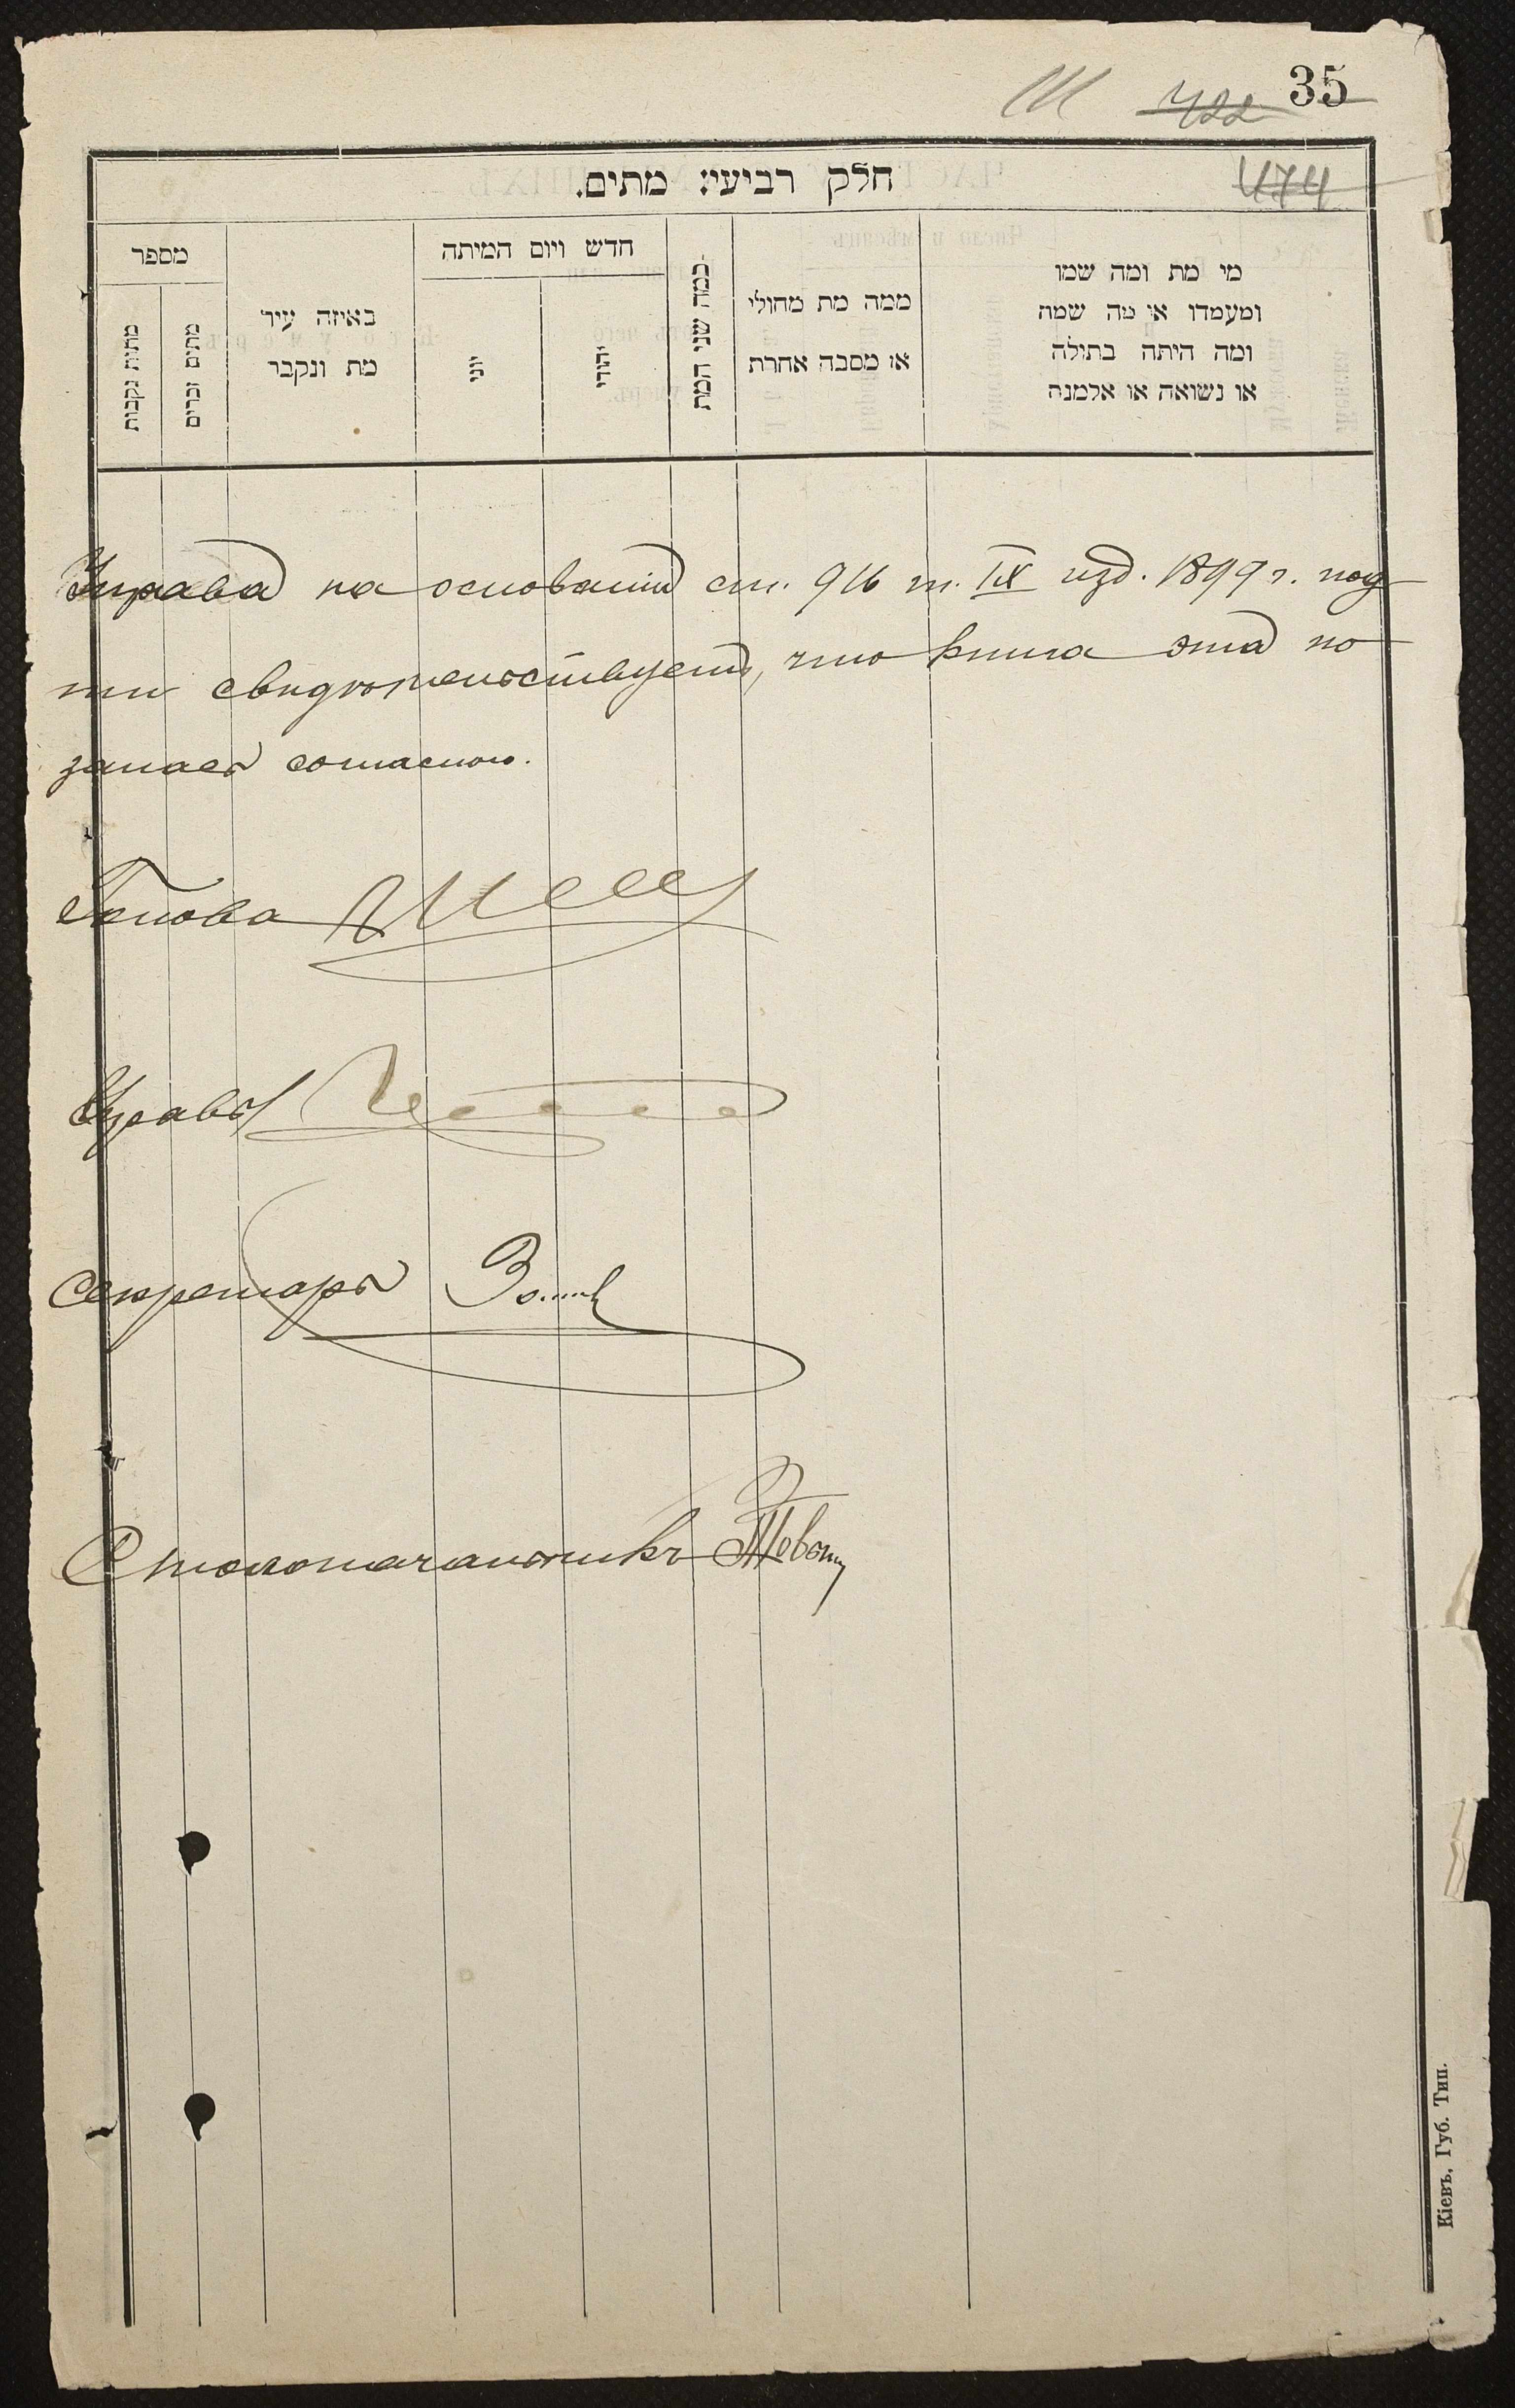 35
422
474
חלק רביעי: מתים.
מי מת ומה שמו
ומעמדו או מה שמה
ומה היתה בתולה
או נשואה או אלמנה
ממה מת מחולי
או מסבה אחרת
כמה שני המת
חדש ויום המיתה
יהודי
יוני
באיזה עיר
מת ונקבר
מספר
מתים זכרים
מתות נקבות
Управа на основаніи ст. 916 т. IX изд. 1899 г. под
ти свидѣтельствуетъ, что книга эта по
запася согласною.
Голова
Управы
Секретарь
Столоначальникъ
Кіевъ, Губ. Тип.